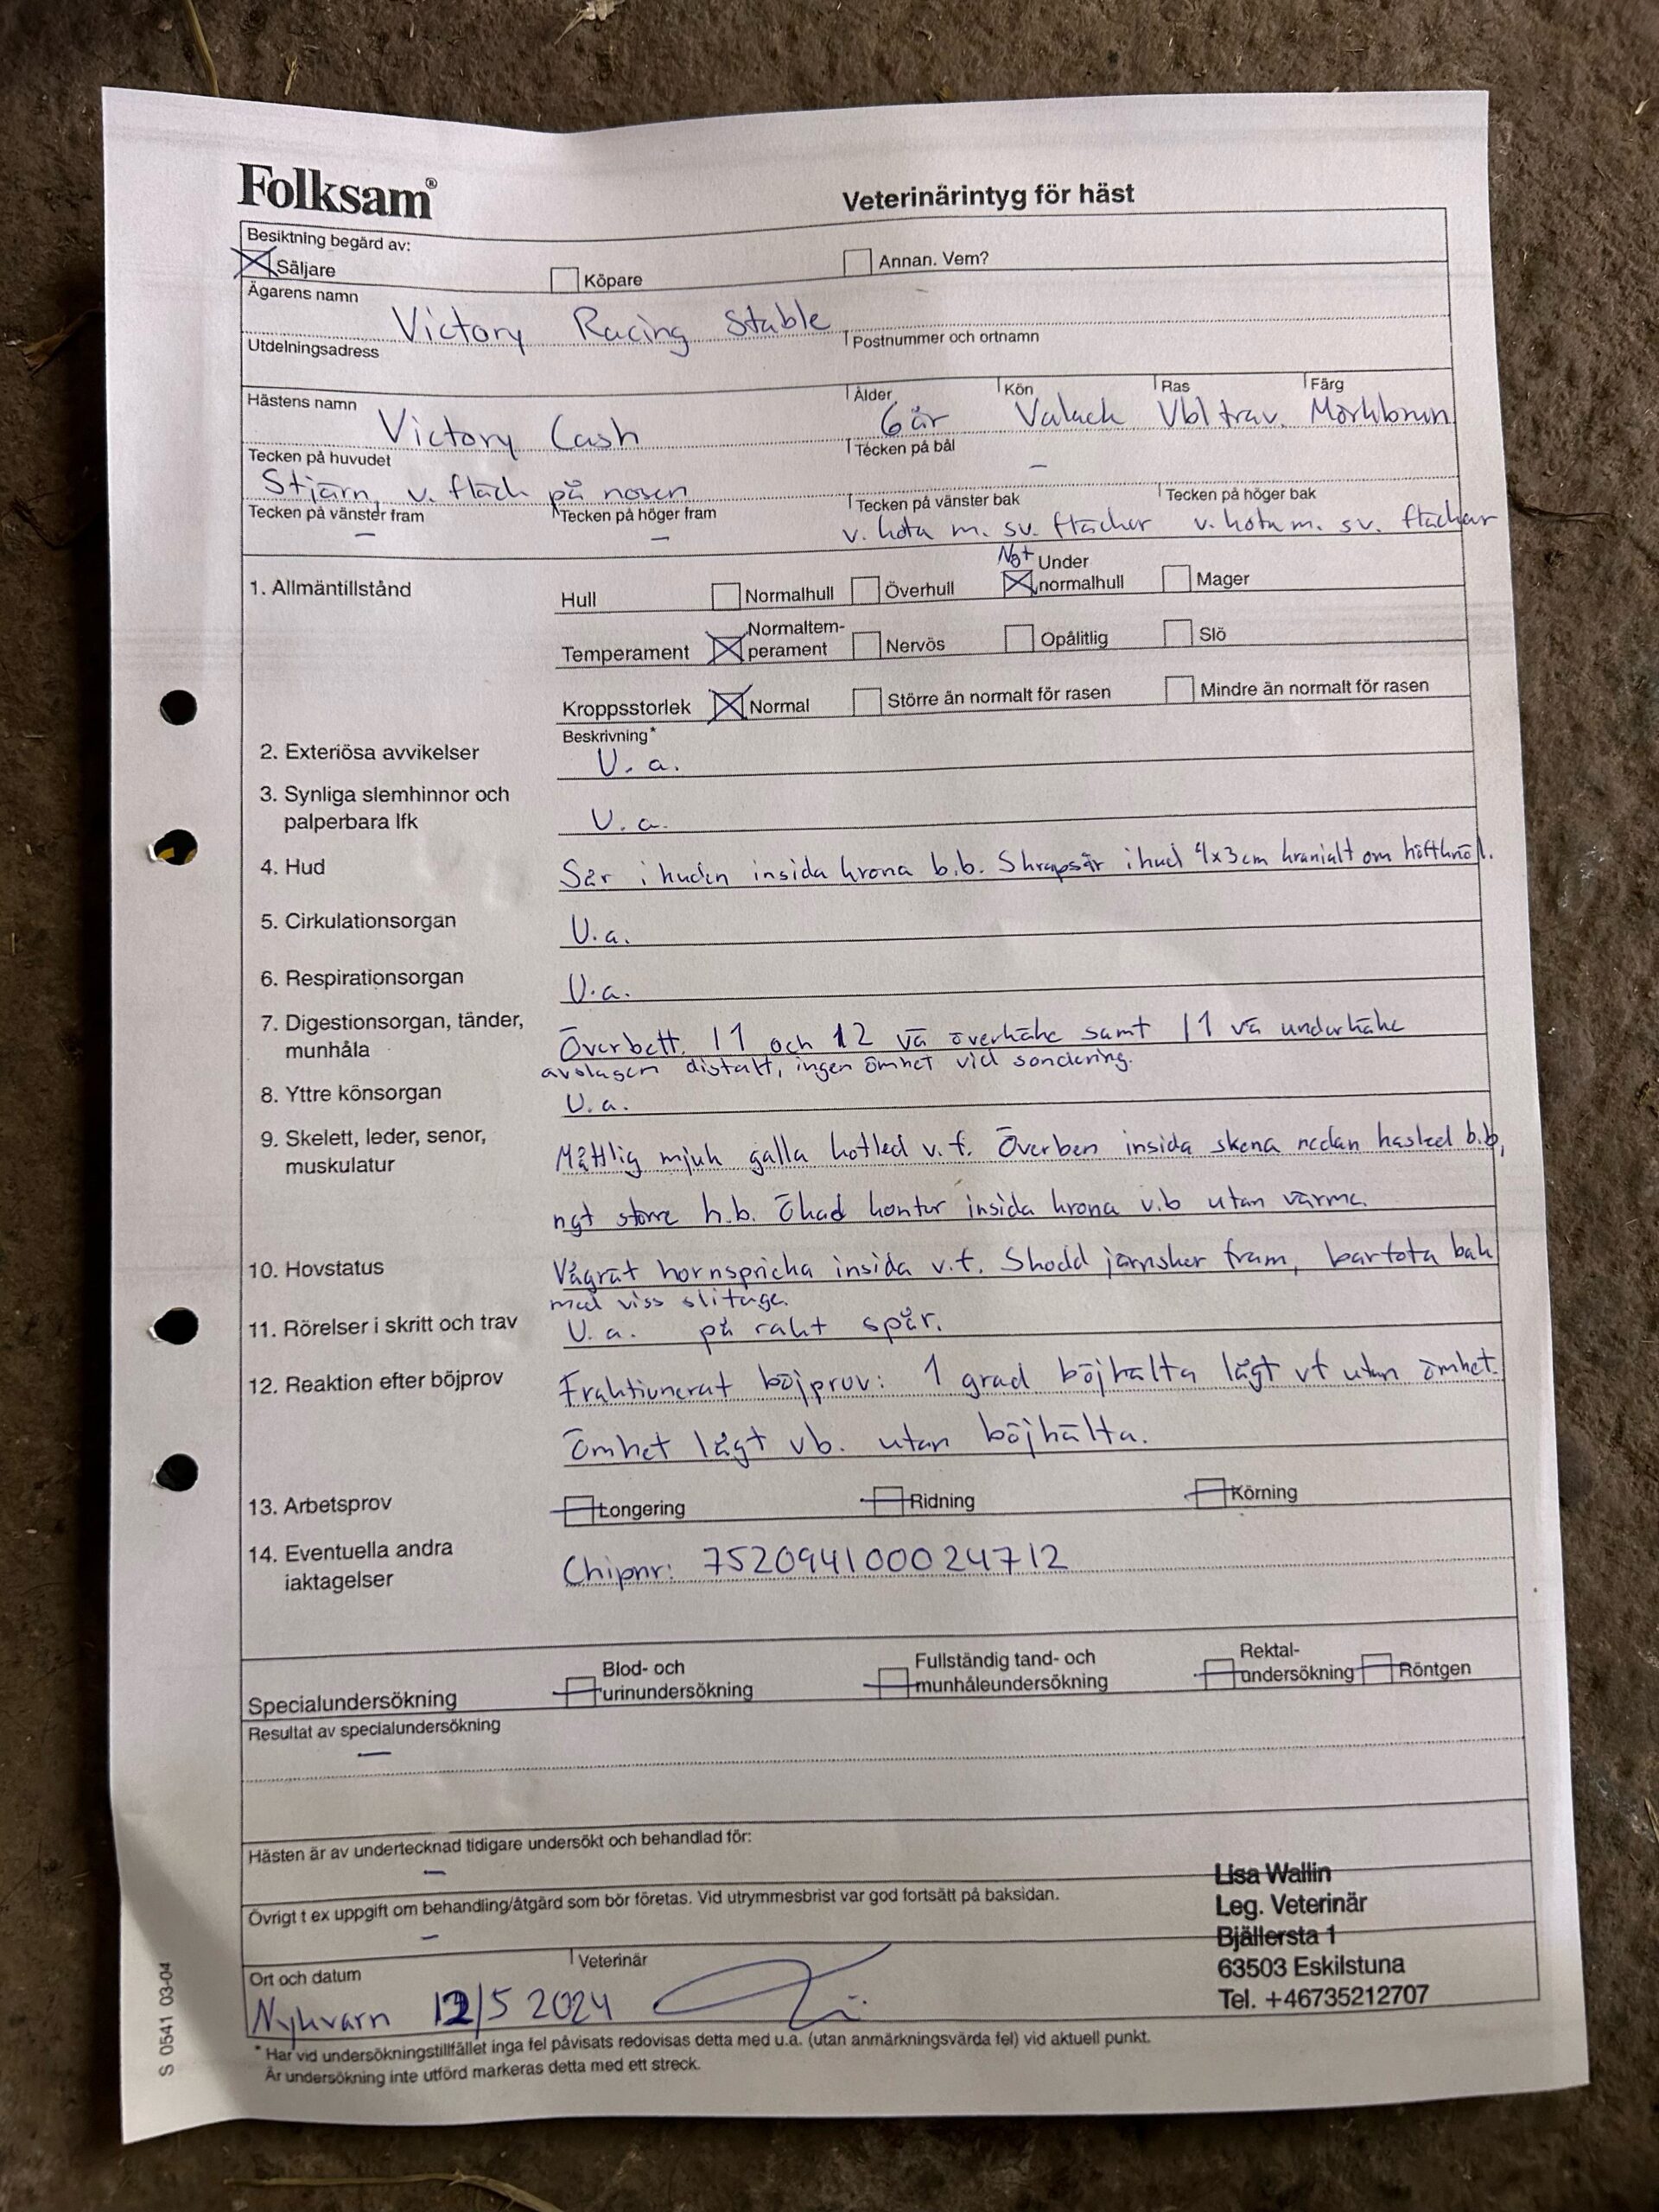 Folksam®
Veterinärintyg för häst
Besiktning begärd av:
Säljare Köpare Annan. Vem?
Ägarens namn
Victory Racing Stable
Utdelningsadress Postnummer och ortnamn
Hästens namn Ålder Kön Ras Färg
Victory Cash 6 år Valack Vbl trav. Mörkbrun
Tecken på huvudet Tecken på bål
Stjärn, v. fläck på nosen –
Tecken på vänster fram Tecken på höger fram Tecken på vänster bak Tecken på höger bak
– – v. kota m. sv. fläckar v. kota m. sv. fläckar
Ngt
1. Allmäntillstånd Hull Normalhull Överhull Under normalhull Mager
Temperament Normaltem-
perament Nervös Opålitlig Slö
Kroppsstorlek Normal Större än normalt för rasen Mindre än normalt för rasen
Beskrivning*
2. Exteriösa avvikelser U. a.
3. Synliga slemhinnor och
palperbara lfk U. a.
4. Hud Sår i huden insida krona b.b. Skrapsår i hud 4x3cm kranialt om höftknöl.
5. Cirkulationsorgan U.a.
6. Respirationsorgan U.a.
7. Digestionsorgan, tänder,
munhåla Överbett. I1 och I2 vä överkäke samt I1 vä underkäke
avslagen distalt, ingen ömhet vid sondering.
8. Yttre könsorgan U.a.
9. Skelett, leder, senor,
muskulatur Måttlig mjuk galla kotled v.f. Överben insida skena nedan hasled b.b,
ngt större h.b. Ökad kontur insida krona v.b utan värme.
10. Hovstatus Vågrät hornspricka insida v.f. Skodd järnskor fram, barfota bak
med viss slitage.
11. Rörelser i skritt och trav U. a. på rakt spår.
12. Reaktion efter böjprov Fraktionerat böjprov: 1 grad böjhälta lågt vf utan ömhet.
Ömhet lågt vb. utan böjhälta.
13. Arbetsprov Longering Ridning Körning
14. Eventuella andra
iaktagelser Chipnr: 752094100024712
Specialundersökning Blod- och
urinundersökning Fullständig tand- och
munhåleundersökning Rektal-
undersökning Röntgen
Resultat av specialundersökning
–
Hästen är av undertecknad tidigare undersökt och behandlad för:
–
Övrigt t ex uppgift om behandling/åtgärd som bör företas. Vid utrymmesbrist var god fortsätt på baksidan.
–
Lisa Wallin
Leg. Veterinär
Bjällersta 1
63503 Eskilstuna
Tel. +46735212707
Ort och datum Veterinär
Nykvarn 12/5 2024
* Har vid undersökningstillfället inga fel påvisats redovisas detta med u.a. (utan anmärkningsvärda fel) vid aktuell punkt.
Är undersökning inte utförd markeras detta med ett streck.
S 0541 03-04